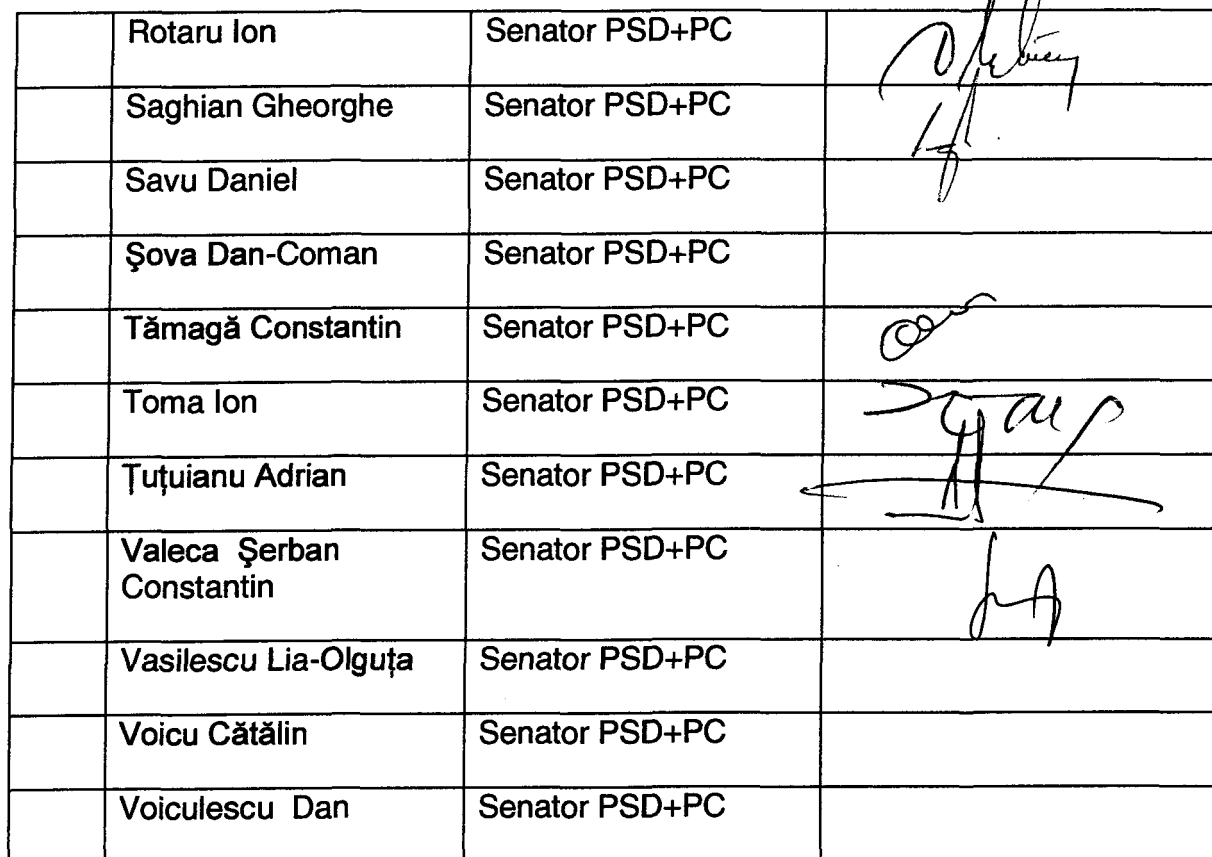 Rotaru Ion Senator PSD+PC
Saghian Gheorghe Senator PSD+PC
Savu Daniel Senator PSD+PC
Şova Dan-Coman Senator PSD+PC
Tămagă Constantin Senator PSD+PC
Toma Ion Senator PSD+PC
Ţuţuianu Adrian Senator PSD+PC
Valeca Şerban Senator PSD+PC
Constantin
Vasilescu Lia-Olguţa Senator PSD+PC
Voicu Cătălin Senator PSD+PC
Voiculescu Dan Senator PSD+PC